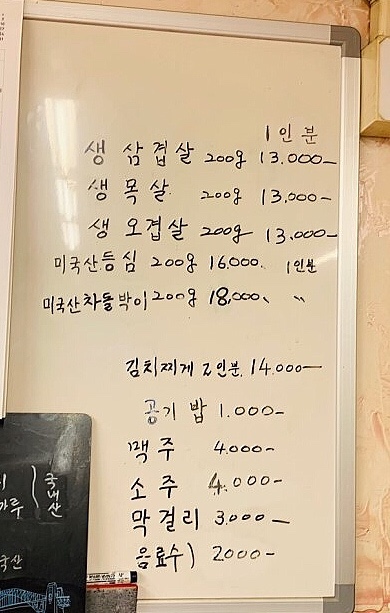 1인분
생 삼겹살 200g 13.000-
생 목살 200g 13,000-
생 오겹살 200g 13.000-
미국산등심 200g 16.000. 1인분
미국산차돌박이 200g 18,000. 〃
김치찌게 2인분. 14.000-
공기 밥 1.000-
맥주 4.000-
소주 4.000-
막걸리 3.000-
음료수) 2000-
가루 ) 국내산
국산